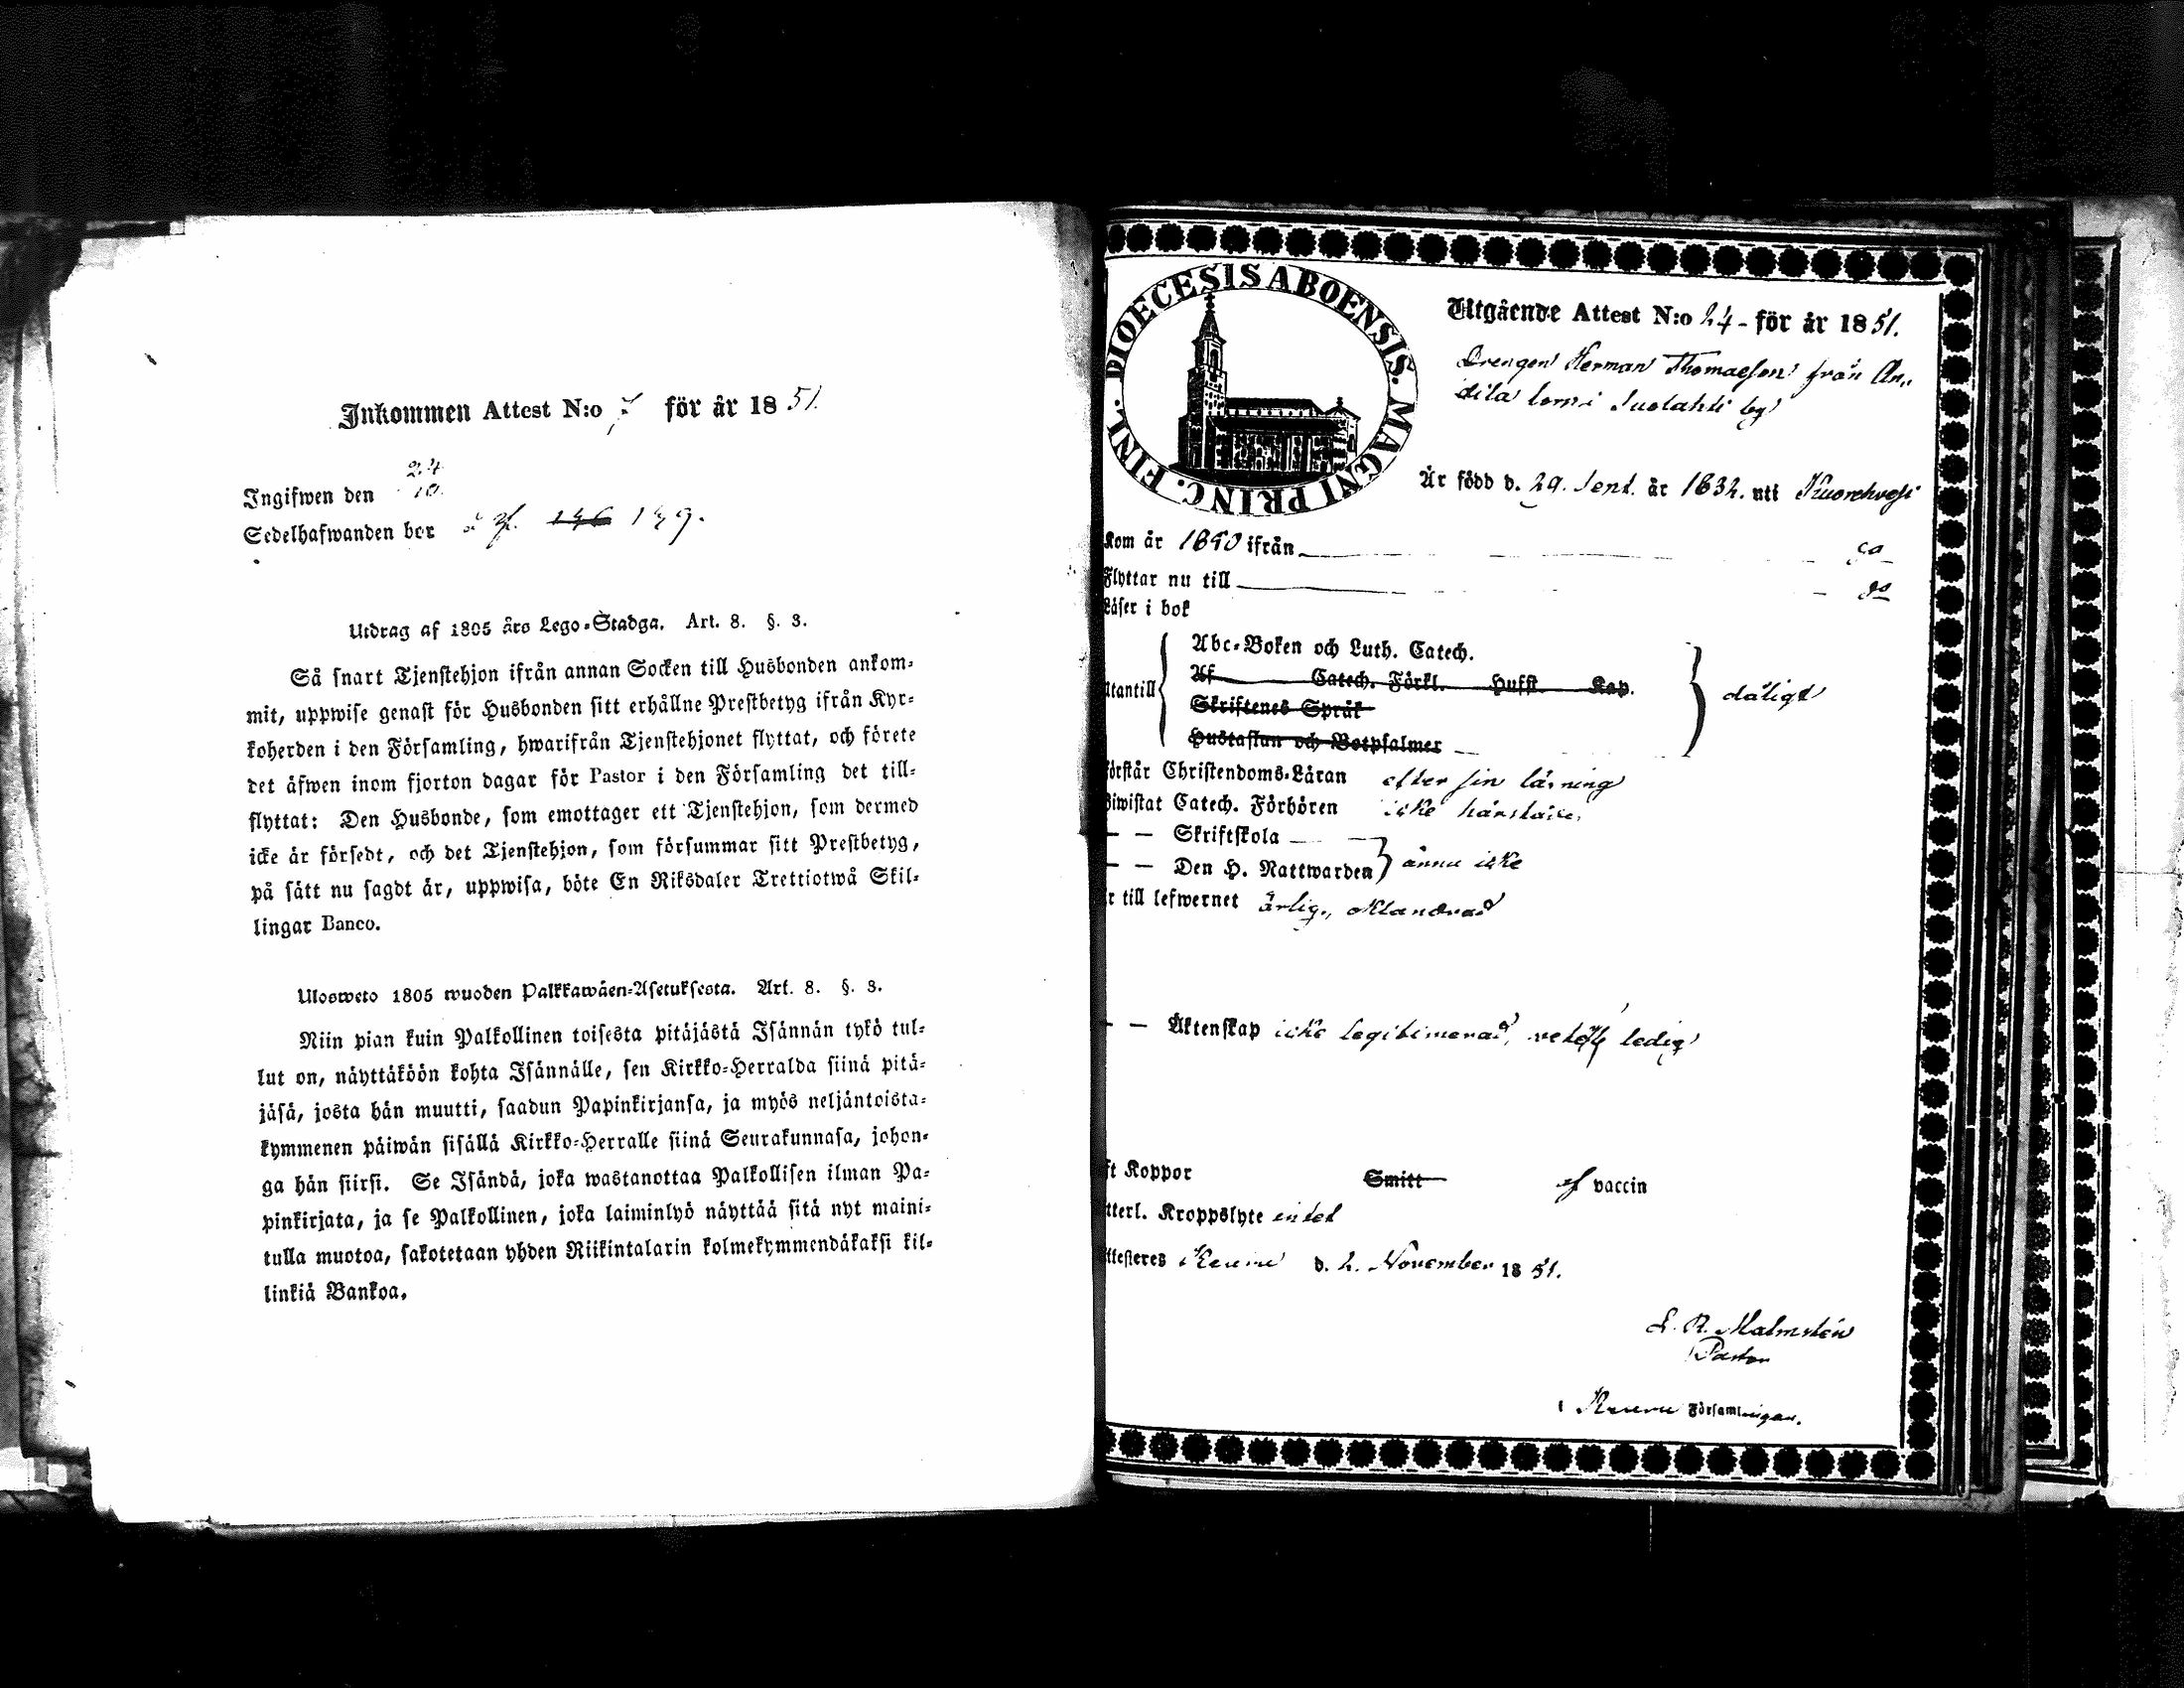 Inkommen Attest N:o för år 1851.
24
10
Ingifwen den
Sedelhafwanden bor 146 149.
Utdrag af 1805 års Lego-Stadga. Art. 8. §. 3.
Så snart Tjenstehjon ifrån annan Socken till Husbonden ankom-
mit, uppwise genast för Husbonden sitt erhållne Prestbetyg ifrån Kyr-
koherden i den Församling, hwarifrån Tjenstehjonet flyttat, och förete
det äfwen inom fjorton dagar för Pastor i den Församling det till-
flyttat: Den Husbonde, som emottager ett Tjenstehjon, som dermed
icke är försedt, och det Tjenstehjon, som försummar sitt Prestbetyg,
på sätt nu sagdt är, uppwisa, böte En Riksdaler Trettiotwå Skil-
lingar Banco.
Ulosweto 1805 wuoden Palkkawäen-Asetuksesta. Art. 8. §. 3.
Niin pian kuin Palkollinen toisesta pitäjästä Isännän tykö tul-
lut on, näyttäköön kohta Isännälle, sen Kirkko-Herralda siinä pitä-
jäsä, josta hän muutti, saadun Papinkirjansa, ja myös neljäntoista-
kymmenen päiwän sisällä Kirkko-Herralle siinä Seurakunnasa, johon-
ga hän siirsi. Se Isändä, joka wastanottaa Palkollisen ilman Pa-
pinkirjata, ja se Palkollinen, joka laiminlyö näyttää sitä nyt maini-
tulla muotoa, sakotetaan yhden Riikintalarin kolmekymmendäkaksi kil-
linkiä Bankoa.
DIOECESIS ABOENSIS. MAGNI PRINC. FINL.
Utgående Attest N:o 24 - för år 1851.
Drengen Herman Thomaeson från An-
dila torp i Suolahti by
Är född d. 29. Sept. år 1832. uti Kuorehvesi
Kom år 1850 ifrån
Flyttar nu till
Läser i bok
Abc-Boken och Luth. Catech.
Af Catech. Förkl. Husst. Kap.
Utantill dåligt
Skriftenes Språk
Hustaflan och Botpsalmer
örstår Christendoms-Läran efter sin läsning
iwistat Catech. Förhören icke härstädes,
— — Skriftskola
— — Den H. Nattwarden ännu icke
r till lefwernet ärlig, oklandrad
— — Äktenskap icke legitimerad, veterl. ledig
ft Koppor Smitt af vaccin
tterl. Kroppslyte intet
ttesteres Keuru d. 2. November 1851.
L. R. Malmstén
Pastor
i Keuru Församlingar.